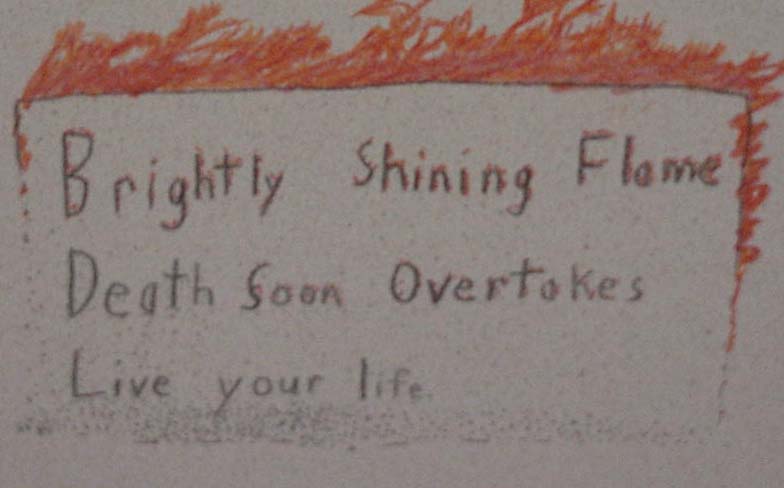 Brightly Shining Flame
Death Soon Overtakes
Live your life.